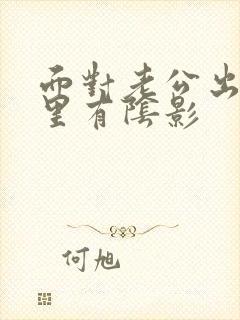 面對老公出
里有陰影
何旭